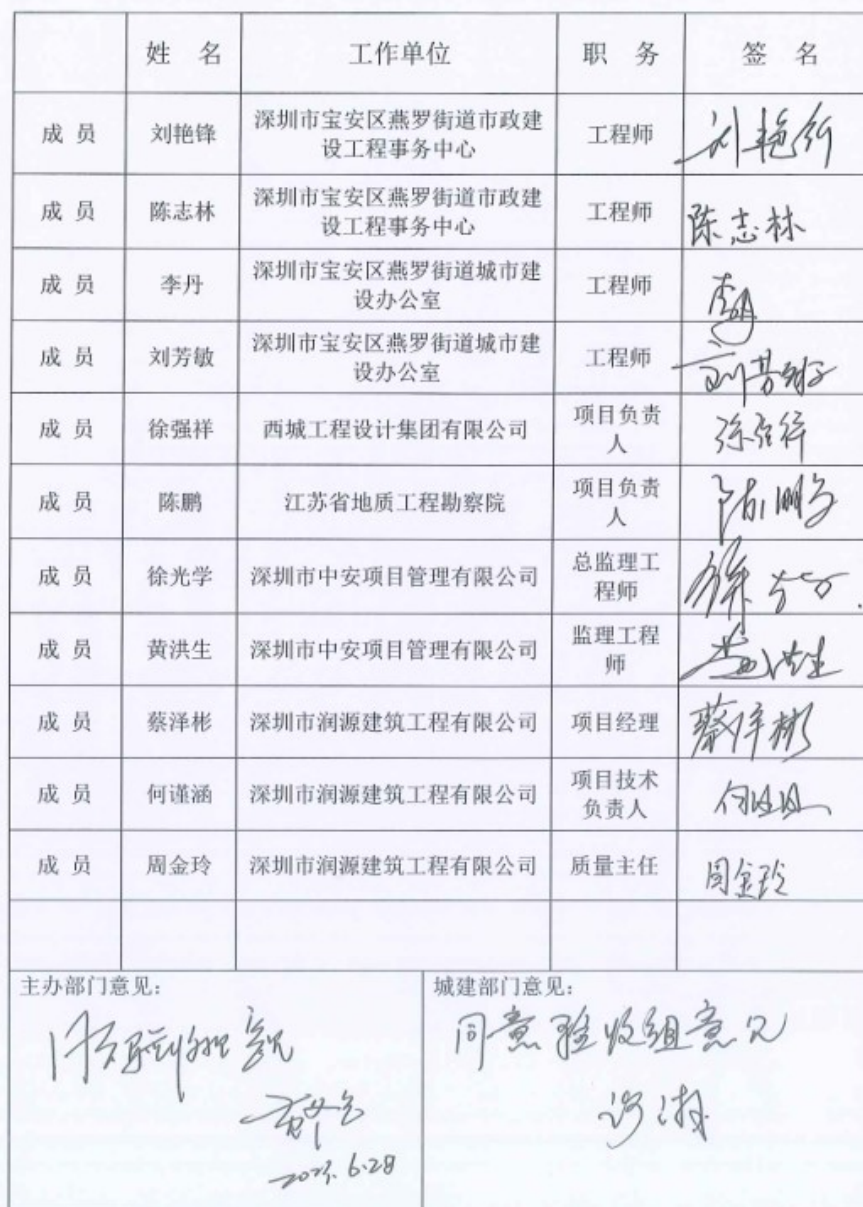 姓 名 工作单位 职 务 签 名
成 员 刘艳锋 深圳市宝安区燕罗街道市政建 工程师 刘艳锋
设工程事务中心
成 员 陈志林 深圳市宝安区燕罗街道市政建 工程师 陈志林
设工程事务中心
成 员 李丹 深圳市宝安区燕罗街道城市建 工程师 李丹
设办公室
成 员 刘芳敏 深圳市宝安区燕罗街道城市建 工程师 刘芳敏
设办公室
成 员 徐强祥 西城工程设计集团有限公司 项目负责
人
成 员 陈鹏 江苏省地质工程勘察院 项目负责 陈鹏
人
成 员 徐光学 深圳市中安项目管理有限公司 总监理工
程师
成 员 黄洪生 深圳市中安项目管理有限公司 监理工程 黄洪生
师
成 员 蔡泽彬 深圳市润源建筑工程有限公司 项目经理 蔡泽彬
成 员 何谨涵 深圳市润源建筑工程有限公司 项目技术
负责人
成 员 周金玲 深圳市润源建筑工程有限公司 质量主任 周金玲
主办部门意见： 城建部门意见：
同意验收组意见